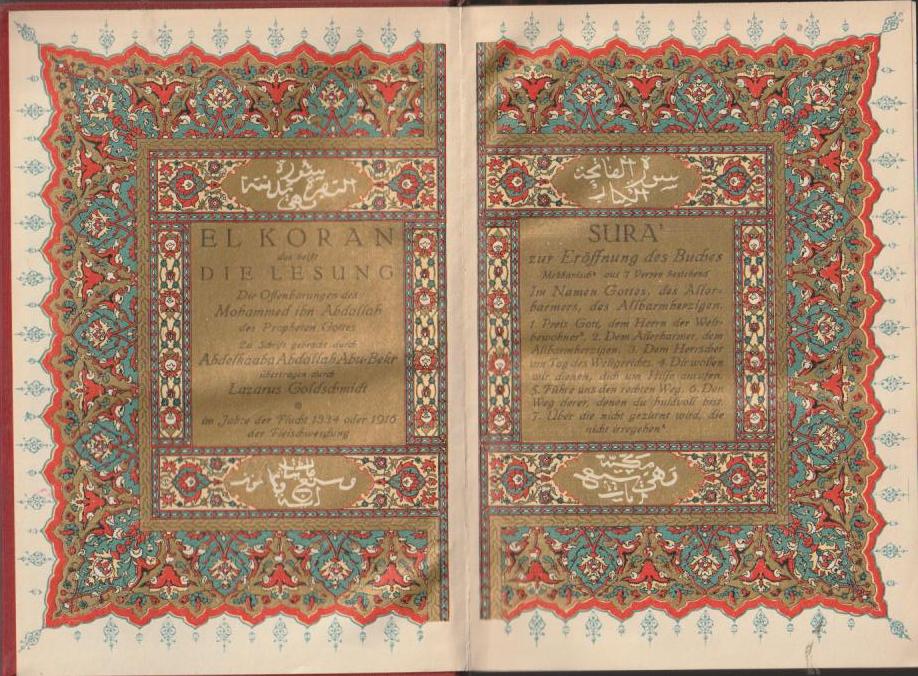 سورة
EL KORAN
das heißt
DIE LESUNG
Die Offenbarungen des
Mohammed ibn Abdallah
des Propheten Gottes
Zur Schrift gebracht durch
Abdelkaaba Abdallah Abu-Bekr
übertragen durch
Lazarus Goldschmidt
im Jahre der Flucht 1334 oder 1916
der Fleischwerdung
سورة الفاتحة
الكتاب
SURA¹
zur Eröffnung des Buches
Mekkanisch² aus 7 Versen bestehend
Im Namen Gottes, des Aller-
barmers, des Allbarmherzigen.
1. Preis Gott, dem Herrn der Welt-
bewohner³, 2. Dem Allerbarmer, dem
Allbarmherzigen, 3. Dem Herrscher
am Tag des Weltgerichts. 4. Dir wollen
wir dienen, dich um Hilfe anrufen.
5. Führe uns den rechten Weg. 6. Den
Weg derer, denen du huldvoll bist,
7. Über die nicht gezürnt wird, die
nicht irregehen⁴.
مكية
وهي سبع
آيات